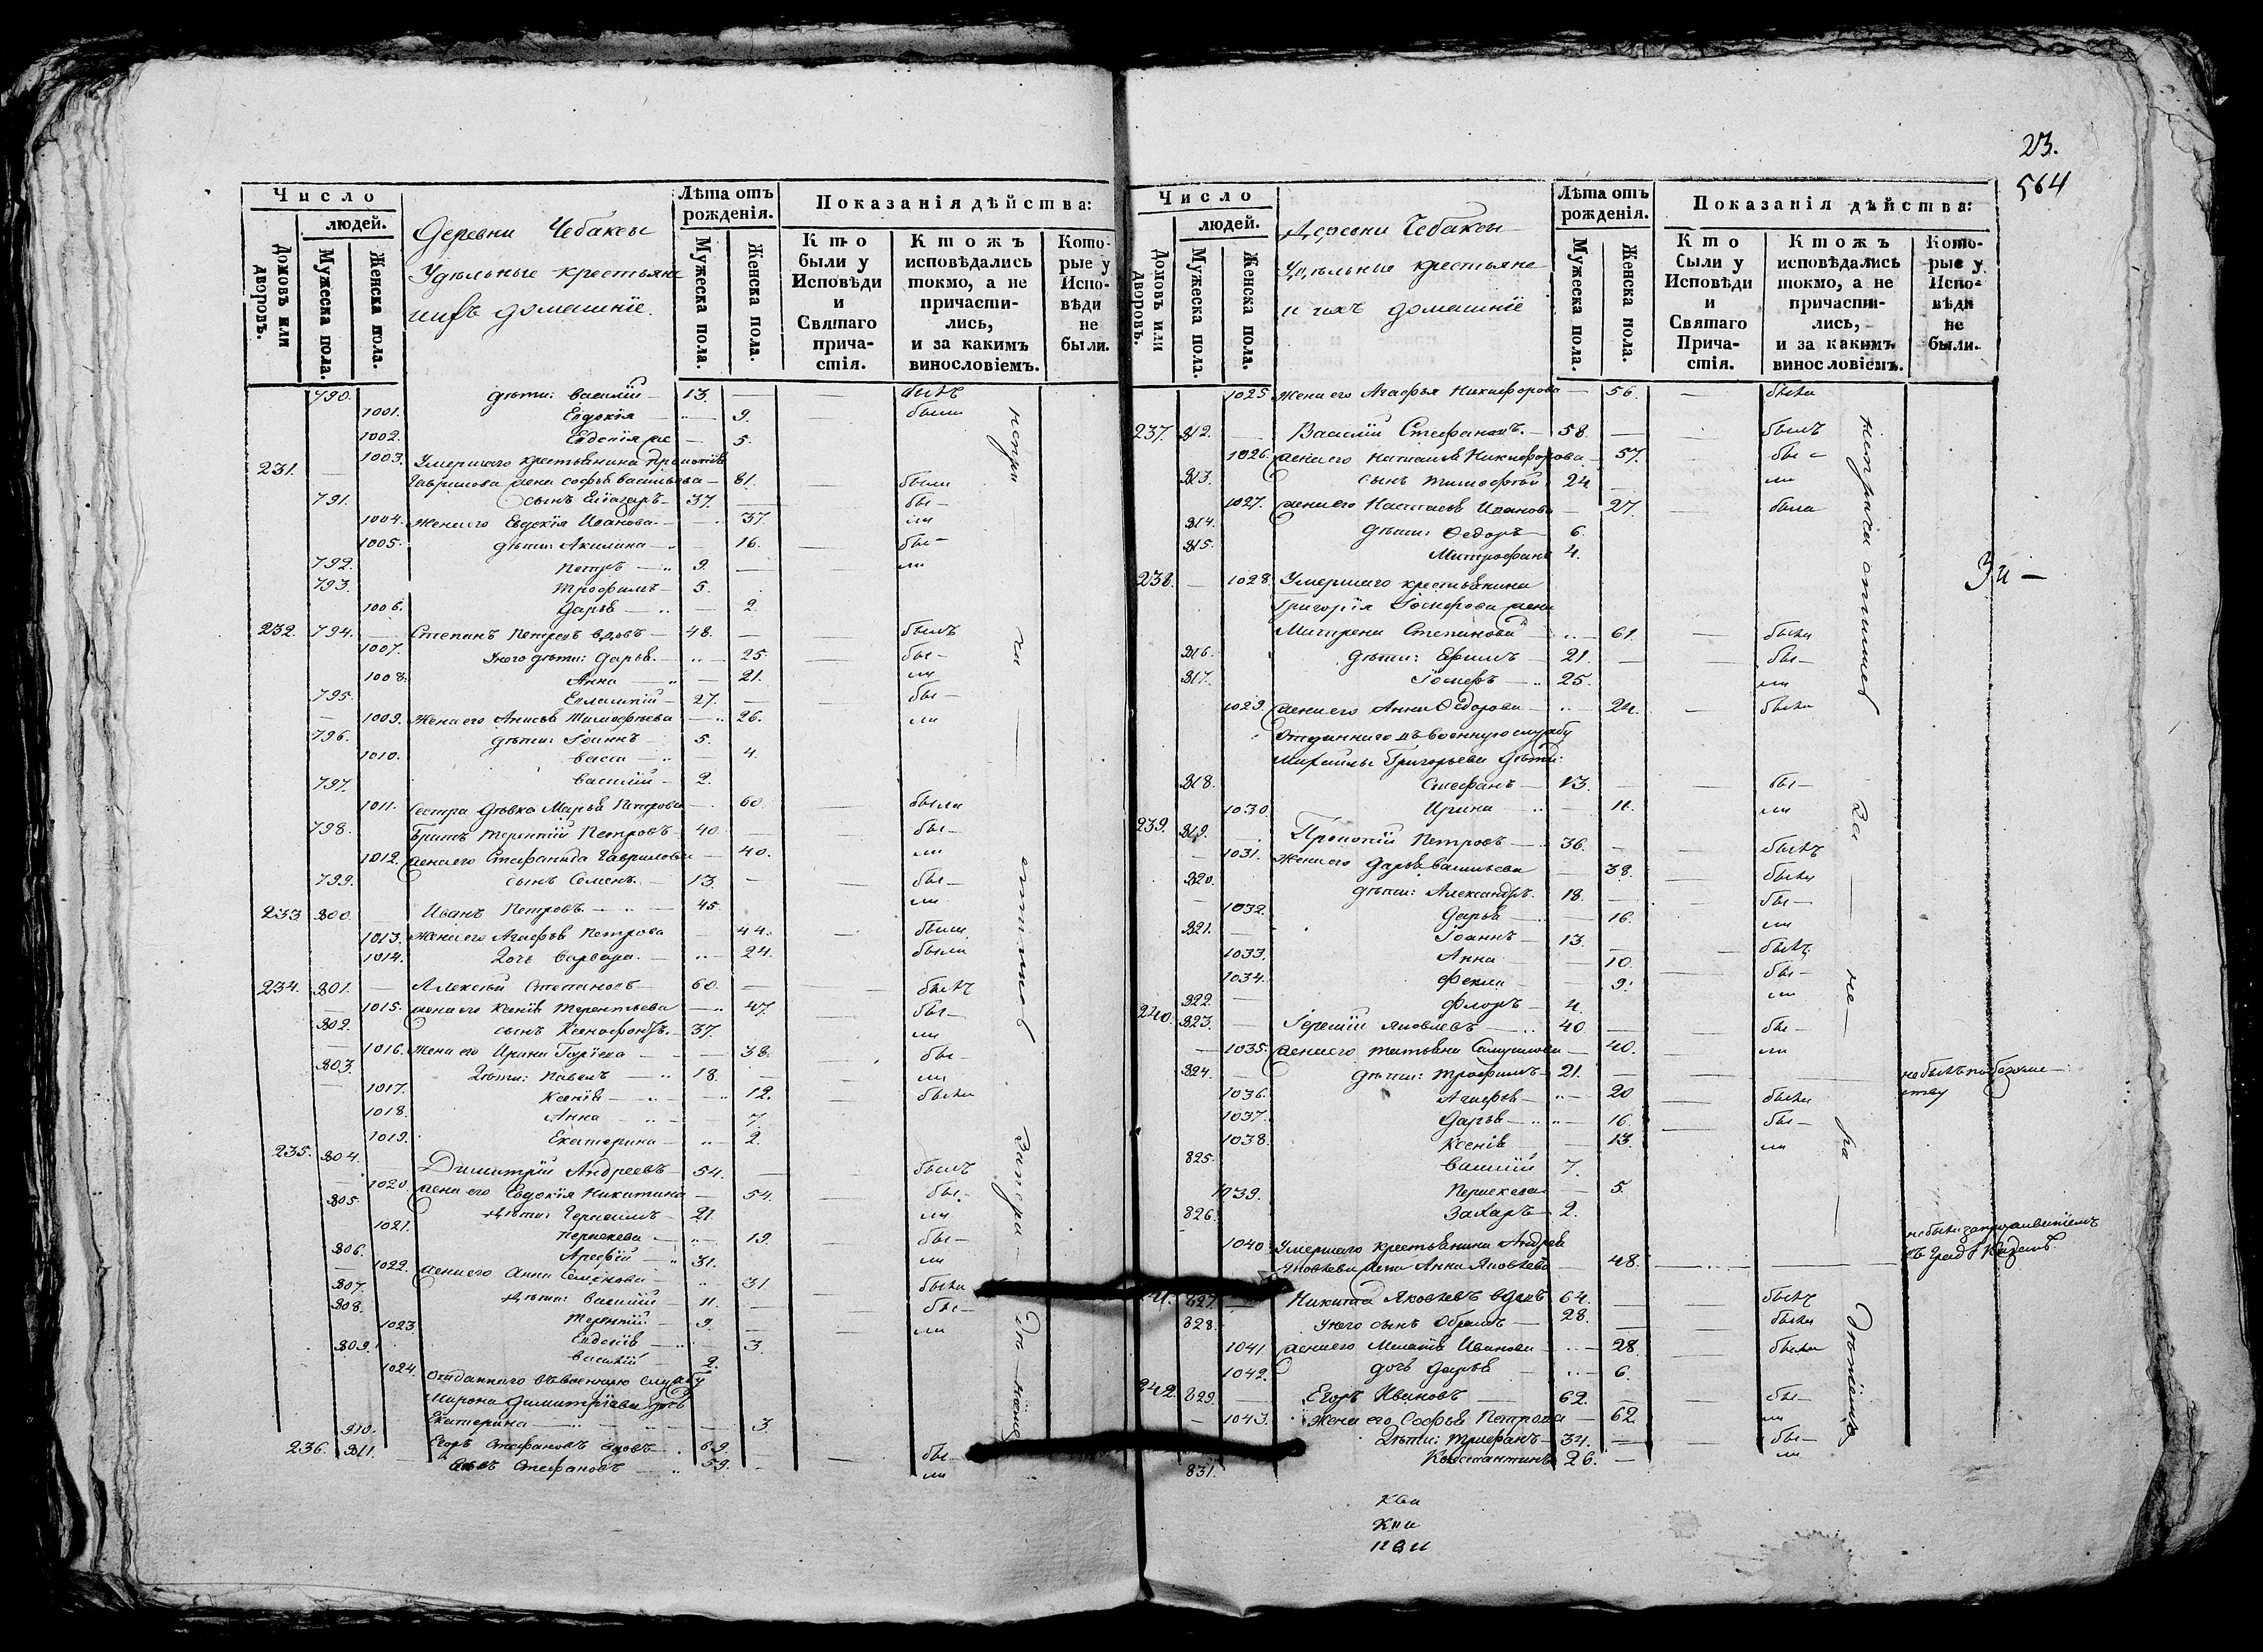 Число
людей.
Домовъ или дворовъ.
Мужеска пола.
Женска пола.
Деревни Чебаксы
Удѣльные крестьяне
ихъ домашніе.
Лѣта отъ рожденія.
Мужеска пола
Женска пола.
Показанія дѣйства:
Кто были у Исповѣди и Святаго причастія.
Ктожъ исповѣдались токмо, а не причастились, и за какимъ винословіемъ.
Которые у Исповѣди не были.
790. дѣти: Василий 13. былъ
1001. Евдокія 9. были
1002. 5.
231. 1003. Умершаго крестьянина
Гаврилова жена Софья Васильева 81. были
791. сынъ 37. бы-
1004. Жена его Евдокія Иванова 37. ли
1005. дѣти: Акилина 16. бы-
792. Петръ 9. ли
793. Трофимъ 5.
1006. Дарья 2.
232. 794. Степанъ Петровъ вдовъ 48. былъ
1007. У него дѣти: Дарья 25. бы-
1008. Анна 21. ли
795. Евлампій 27. бы-
1009. Жена его Анисья Тимофѣева 26. ли
796. дѣти: Іоаннъ 5.
1010. Васса 4.
797. Василій 2.
1011. Сестра дѣвка Марья Петрова 60. была
798. Братъ Терентій Петровъ 40. бы-
1012. Жена его Стефанида Гаврилова 40. ли
799. сынъ Семенъ 13. бы-
233. 800. Иванъ Петровъ 45. ли
1013. Жена его Агафья Петрова 44. были
1014. Дочь Варвара 24. была
234. 801. Алексѣй Степановъ 60. былъ
1015. Жена его Ксенія Терентьева 47. бы-
802. сынъ Ксенофонтъ 37. ли
1016. Жена его Ирина 38. бы-
803. Дѣти: Павелъ 18. ли
1017. Ксенія 12. была
1018. Анна 7.
1019. Екатерина 2.
235. 804. Димитрій Андреевъ 54. былъ
1020. Жена его Евдокія Никитина 54. бы-
805. дѣти: Герасимъ 21. ли
1021. Параскева 19. бы-
806. Арефій 31. ли
1022. Жена его Анна Семенова 31. была
807. дѣти: Василій 11. бы-
808. Терентій 9. ли
1023. Евдокія 3.
809. Василій 2.
1024. Отданнаго въ военную службу
Мирона Димитріева дочь
Екатерина 3.
910. Егоръ Стефановъ вдовъ 69. бы-
236. 811. Стефановъ 59. ли
23.
564
Число
людей.
Домовъ или дворовъ.
Мужеска пола.
Женска пола.
Деревни Чебаксы
Удѣльные крестьяне
и ихъ домашніе
Лѣта отъ рожденія.
Мужеска пола.
Женска пола.
Показанія дѣйства:
Кто были у Исповѣди и Святаго Причастія.
Ктожъ исповѣдались токмо, а не причастились, и за какимъ винословіемъ.
Которые у Исповѣди не были.
1025. Жена его Агафья Никифорова 56. была
237. 812. Василій Стефановъ 58. былъ
1026. Жена его Наталья Никифорова 57. бы-
813. сынъ Тимофѣй 24. ли
1027. Жена его Настасья Иванова 27. была
814. дѣти: Ѳедоръ 6.
815. Митрофанъ 4.
238. 1028. Умершаго крестьянина
Григорія Іосифова жена
Матрена Степанова 61. была
816. дѣти: Ефимъ 21. бы-
817. Іосифъ 25. ли
1029. Жена его Анна Ѳедорова 24. была
Отданнаго въ военную службу
Михайлы Григорьева дѣти:
818. Стефанъ 13. бы-
1030. Ирина 11. ли
239. 819. Прокопій Петровъ 36. былъ
1031. Жена его Дарья Васильева 38. была
820. дѣти: Александръ 18. бы-
1032. Дарья 16. ли
821. Іоаннъ 13. былъ
1033. Анна 10. бы-
1034. Фекла 9. ли
822. Флоръ 4.
240. 823. Яковлевъ 40. бы-
1035. Жена его Татьяна Самуилова 40. ли
824. дѣти: Трофимъ 21.
1036. Агафья 20 была
1037. Дарья 16. бы-
1038. Ксенія 13. ли
825. Василій 7.
1039. Параскева 5.
826. Захаръ 2.
1040. Умершаго крестьянина Андрея
Яковлева жена Анна Яковлева 48.
827. Никита Яковлевъ вдовъ 64. былъ
828. У него сынъ 28. былъ
1041. Жена его Меланія Иванова 28. была
1042. дочь Дарья 6.
242. 829. Егоръ Ивановъ 62. бы-
1043. Жена его Софья Петрова 62. ли
Дѣти: Трифанъ 34. бы-
831. Константинъ 26. ли